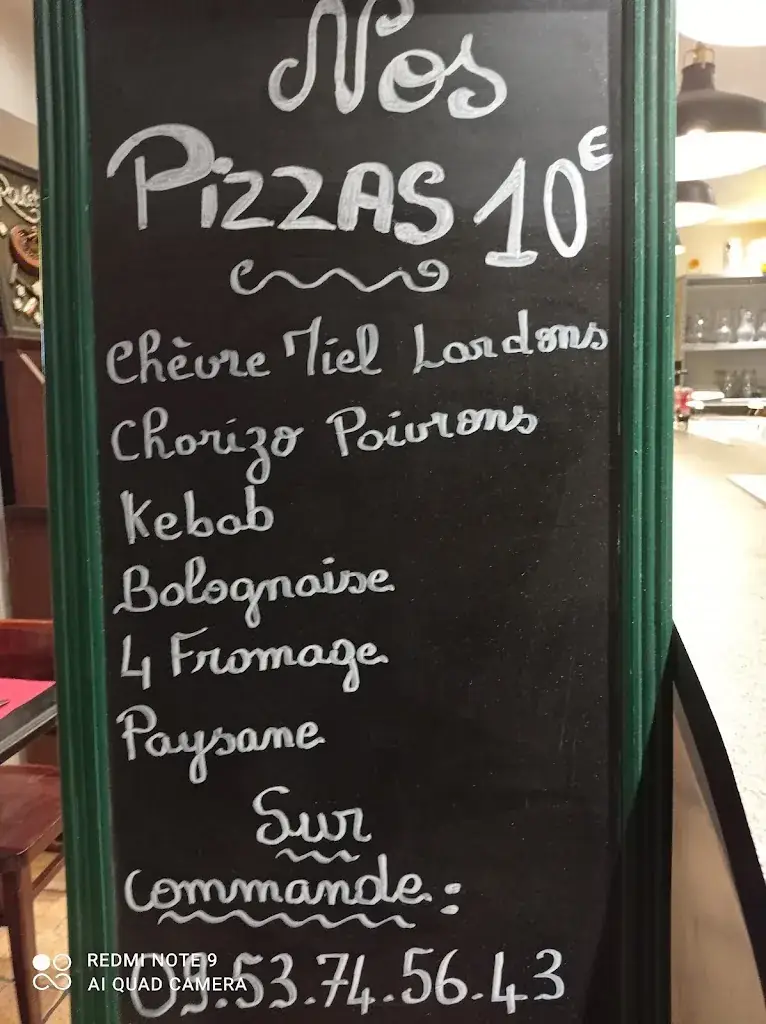 Nos
PizzAS 10€
Chèvre Miel Lardons
Chorizo Poivrons
Kebab
Bolognaise
4 Fromage
Paysane
Sur
Commande :
09.53.74.56.43
REDMI NOTE 9
AI QUAD CAMERA